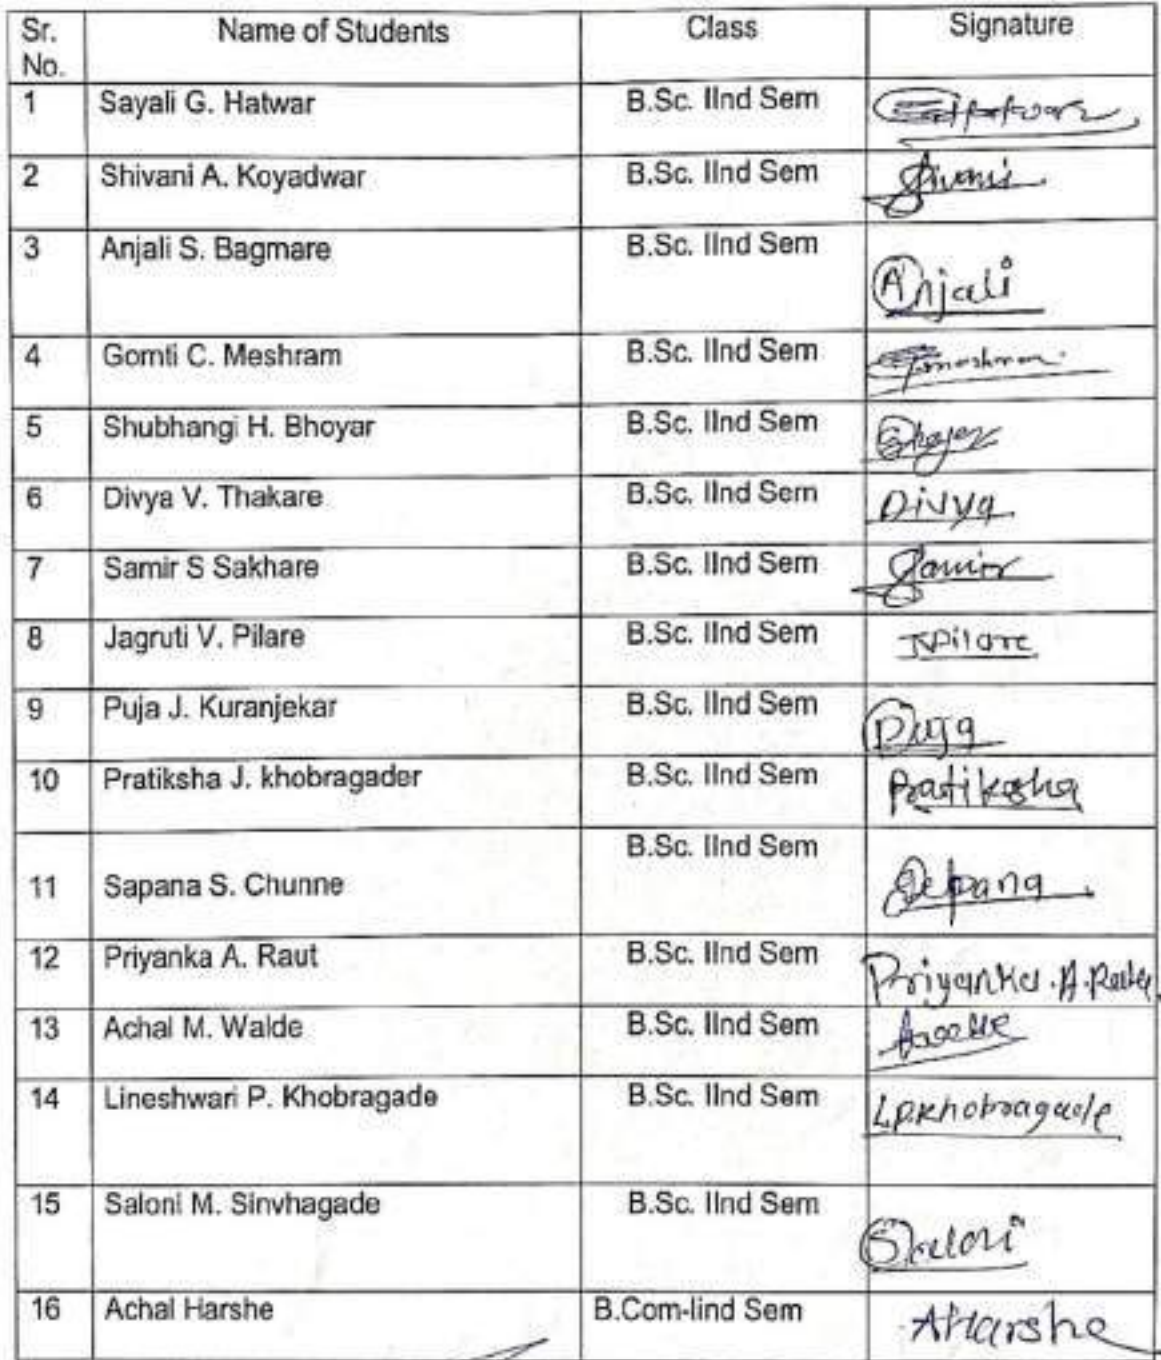 Sr. No. Name of Students Class Signature
1 Sayali G. Hatwar B.Sc. IInd Sem
2 Shivani A. Koyadwar B.Sc. IInd Sem Shivani
3 Anjali S. Bagmare B.Sc. IInd Sem Anjali
4 Gomti C. Meshram B.Sc. IInd Sem
5 Shubhangi H. Bhoyar B.Sc. IInd Sem
6 Divya V. Thakare B.Sc. IInd Sem Divya
7 Samir S Sakhare B.Sc. IInd Sem Samir
8 Jagruti V. Pilare B.Sc. IInd Sem
9 Puja J. Kuranjekar B.Sc. IInd Sem Puja
10 Pratiksha J. khobragader B.Sc. IInd Sem Pratiksha
11 Sapana S. Chunne B.Sc. IInd Sem Sapana
12 Priyanka A. Raut B.Sc. IInd Sem Priyanka.A.
13 Achal M. Walde B.Sc. IInd Sem
14 Lineshwari P. Khobragade B.Sc. IInd Sem L.P.Khobragade
15 Saloni M. Sinvhagade B.Sc. IInd Sem Saloni
16 Achal Harshe B.Com-Iind Sem AHarshe